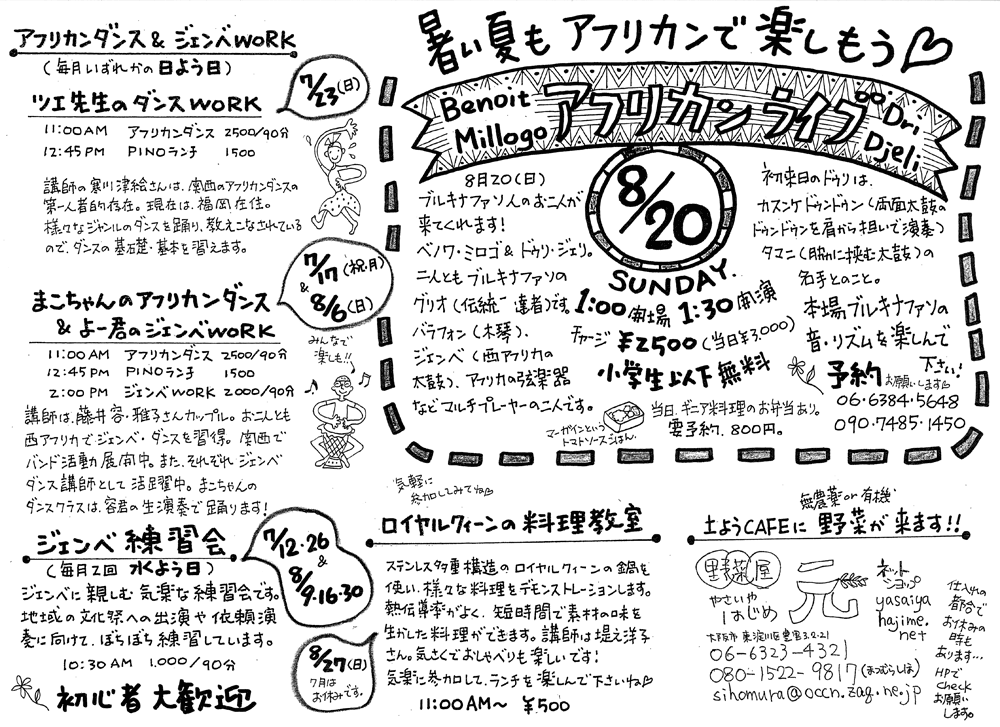 アフリカンダンス & ジェンベWORK
(毎月いずれかの日よう日)
7/23(日)
ツエ先生のダンスWORK
11:00AM アフリカンダンス 2500/90分
12:45PM PINOランチ 1500
講師の寒川津絵さんは、関西のアフリカンダンスの
第一人者的存在。現在は、福岡在住。
様々なジャンルのダンスを踊り、教えこなされている
ので、ダンスの基礎・基本を習えます。
7/17(祝・月)
&
8/6(日)
まこちゃんのアフリカンダンス
& よー君のジェンベWORK
みんなで
楽しも!!
11:00AM アフリカンダンス 2500/90分
12:45PM PINOランチ 1500
2:00PM ジェンベWORK 2000/90分
講師は、藤井容・雅子さんカップル。お二人とも
西アフリカでジェンベ・ダンスを習得。関西で
バンド活動展開中。また、それぞれジェンベ
ダンス講師として活躍中。まこちゃんの
ダンスクラスは、容君の生演奏で踊ります!
ジェンベ練習会
(毎月2回 水よう日)
7/12・26
&
8/9・16・30
ジェンベに親しむ気楽な練習会です。
地域の文化祭への出演や依頼演
奏に向けて、ぼちぼち練習しています。
10:30AM 1,000/90分
初心者大歓迎
暑い夏も アフリカンで楽しもう♡
Benoit
Millogo
アフリカンライブ
Dri
Djeli
8月20(日)
ブルキナファソ人のお二人が
来てくれます!
ベノワ・ミロゴ & ドゥリ・ジェリ。
二人ともブルキナファソの
グリオ(伝統伝達者)です。
バラフォン(木琴)、
ジェンベ(西アフリカの
太鼓)、アフリカの弦楽器
などマルチプレーヤーの二人です。
8/20
SUNDAY.
1:00開場 1:30開演
チャージ ¥2500(当日¥3,000)
小学生以下無料
マーガインという
トマトソースごはん。
当日、ギニア料理のお弁当あり。
要予約、800円。
初来日のドゥリは、
カスンケドゥンドゥン(両面太鼓の
ドゥンドゥンを肩から担いで演奏)
タマニ(脇に挟む太鼓)の
名手とのこと。
本場ブルキナファソの
音・リズムを楽しんで
下さい!
予約お願いします
06・6384・5648
090・7485・1450
気軽に
参加してみてね♡
ロイヤルクィーンの料理教室
8/27(日)
7月は
お休みです。
ステンレス多重構造のロイヤルクィーンの鍋を
使い、様々な料理をデモンストレーションします。
熱伝導率がよく、短時間で素材の味を
生かした料理ができます。講師は堤え洋子
さん。気さくでおしゃべりも楽しいです!
気楽に参加して、ランチを楽しんで下さいね♡
11:00AM〜 ¥500
無農薬or有機
土ようCAFEに野菜が来ます!!
野菜屋 元
やさいや
はじめ
ネット
ショップ
yasaiya
hajime.
net
大阪市東淀川区豊里3-2-21
06-6323-4321
080-1522-9817(まつむらしほ)
sihomura@occn.zaq.ne.jp
仕入れの
都合で
お休みの
時も
あります…
HPで
Check
お願い
します。